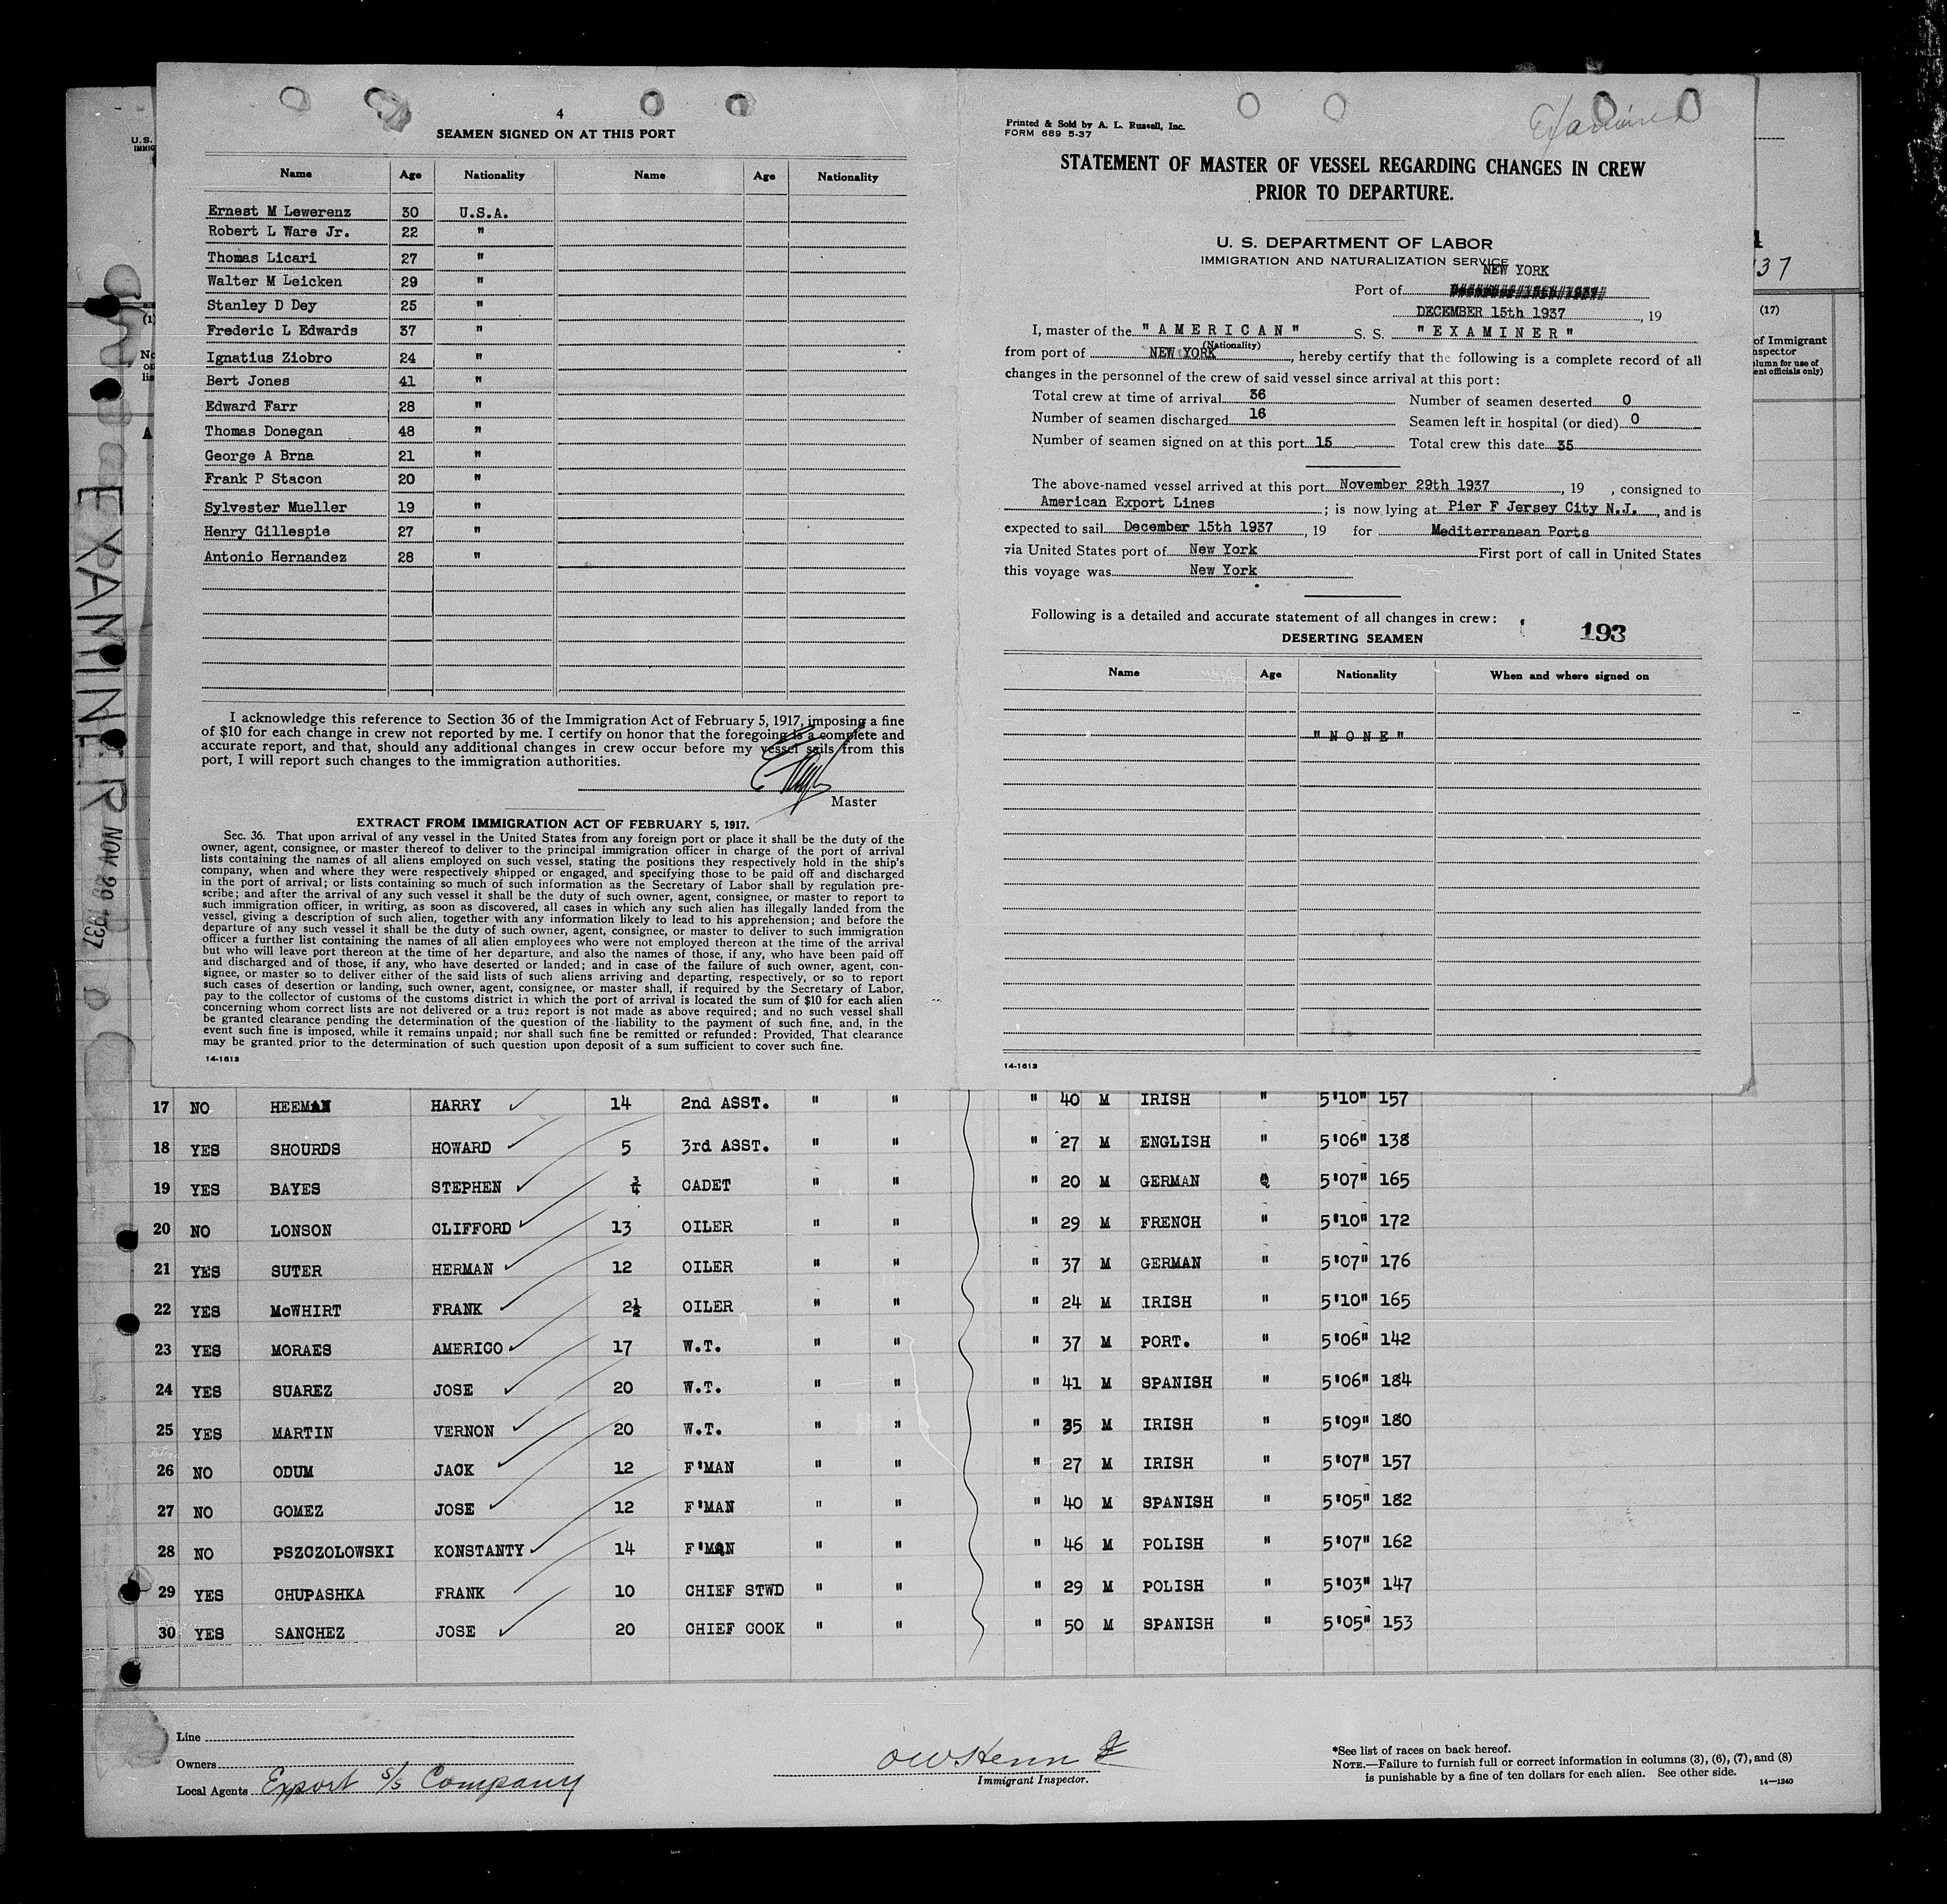 4
SEAMEN SIGNED ON AT THIS PORT
Name Age Nationality Name Age Nationality
Ernest M Lewerenz 30 U.S.A.
Robert L Ware Jr. 22 "
Thomas Licari 27 "
Walter M Leicken 29 "
Stanley D Dey 25 "
Frederic L Edwards 37 "
Ignatius Ziobro 24 "
Bert Jones 41 "
Edward Farr 28 "
Thomas Donegan 48 "
George A Brna 21 "
Frank P Stacon 20 "
Sylvester Mueller 19 "
Henry Gillespie 27 "
Antonio Hernandez 28 "
I acknowledge this reference to Section 36 of the Immigration Act of February 5, 1917, imposing a fine
of $10 for each change in crew not reported by me. I certify on honor that the foregoing is a complete and
accurate report, and that, should any additional changes in crew occur before my vessel sails from this
port, I will report such changes to the immigration authorities.
Master
EXTRACT FROM IMMIGRATION ACT OF FEBRUARY 5, 1917.
Sec. 36. That upon arrival of any vessel in the United States from any foreign port or place it shall be the duty of the
owner, agent, consignee, or master thereof to deliver to the principal immigration officer in charge of the port of arrival
lists containing the names of all aliens employed on such vessel, stating the positions they respectively hold in the ship's
company, when and where they were respectively shipped or engaged, and specifying those to be paid off and discharged
in the port of arrival; or lists containing so much of such information as the Secretary of Labor shall by regulation pre-
scribe; and after the arrival of any such vessel it shall be the duty of such owner, agent, consignee, or master to report to
such immigration officer, in writing, as soon as discovered, all cases in which any such alien has illegally landed from the
vessel, giving a description of such alien, together with any information likely to lead to his apprehension; and before the
departure of any such vessel it shall be the duty of such owner, agent, consignee, or master to deliver to such immigration
officer a further list containing the names of all alien employees who were not employed thereon at the time of the arrival
but who will leave port thereon at the time of her departure, and also the names of those, if any, who have been paid off
and discharged and of those, if any, who have deserted or landed; and in case of the failure of such owner, agent, con-
signee, or master so to deliver either of the said lists of such aliens arriving and departing, respectively, or so to report
such cases of desertion or landing, such owner, agent, consignee, or master shall, if required by the Secretary of Labor,
pay to the collector of customs of the customs district in which the port of arrival is located the sum of $10 for each alien
concerning whom correct lists are not delivered or a true report is not made as above required; and no such vessel shall
be granted clearance pending the determination of the question of the liability to the payment of such fine, and, in the
event such fine is imposed, while it remains unpaid; nor shall such fine be remitted or refunded: Provided, That clearance
may be granted prior to the determination of such question upon deposit of a sum sufficient to cover such fine.
14-1613
Examiner
Printed & Sold by A. L. Russell, Inc.
FORM 689 5-37
STATEMENT OF MASTER OF VESSEL REGARDING CHANGES IN CREW
PRIOR TO DEPARTURE.
U. S. DEPARTMENT OF LABOR
IMMIGRATION AND NATURALIZATION SERVICE
NEW YORK
Port of
DECEMBER 15th 1937, 19
I, master of the "AMERICAN" S. S. "EXAMINER"
(Nationality)
from port of NEW YORK, hereby certify that the following is a complete record of all
changes in the personnel of the crew of said vessel since arrival at this port:
Total crew at time of arrival 36 Number of seamen deserted 0
Number of seamen discharged 16 Seamen left in hospital (or died) 0
Number of seamen signed on at this port 15 Total crew this date 35
The above-named vessel arrived at this port November 29th 1937, 19 , consigned to
American Export Lines ; is now lying at Pier F Jersey City N.J., and is
expected to sail December 15th 1937, 19 for Mediterranean Ports
via United States port of New York First port of call in United States
this voyage was New York
Following is a detailed and accurate statement of all changes in crew:
193
DESERTING SEAMEN
Name Age Nationality When and where signed on
"NONE"
14-1613
U.S.
IMMIG
(1)
No
on
lis
A
EXAMINER NOV 29 1937
37
(17)
of Immigrant
nspector
olumn for use of
ent officials only)
17 NO HEEMAN HARRY 14 2nd ASST. " " " 40 M IRISH " 5'10" 157
18 YES SHOURDS HOWARD 5 3rd ASST. " " " 27 M ENGLISH " 5'06" 138
19 YES BAYES STEPHEN ¾ CADET " " " 20 M GERMAN 5'07" 165
20 NO LONSON CLIFFORD 13 OILER " " " 29 M FRENCH " 5'10" 172
21 YES SUTER HERMAN 12 OILER " " " 37 M GERMAN " 5'07" 176
22 YES McWHIRT FRANK 2½ OILER " " " 24 M IRISH " 5'10" 165
23 YES MORAES AMERICO 17 W.T. " " " 37 M PORT. " 5'06" 142
24 YES SUAREZ JOSE 20 W.T. " " " 41 M SPANISH " 5'06" 184
25 YES MARTIN VERNON 20 W.T. " " " 35 M IRISH " 5'09" 180
26 NO ODUM JACK 12 F'MAN " " " 27 M IRISH " 5'07" 157
27 NO GOMEZ JOSE 12 F'MAN " " " 40 M SPANISH " 5'05" 182
28 NO PSZCZOLOWSKI KONSTANTY 14 F'MAN " " " 46 M POLISH " 5'07" 162
29 YES CHUPASHKA FRANK 10 CHIEF STWD " " " 29 M POLISH " 5'03" 147
30 YES SANCHEZ JOSE 20 CHIEF COOK " " " 50 M SPANISH " 5'05" 153
Line
Owners
Local Agents Export S/S Company
Immigrant Inspector.
*See list of races on back hereof.
NOTE.—Failure to furnish full or correct information in columns (3), (6), (7), and (8)
is punishable by a fine of ten dollars for each alien. See other side.
14—1240